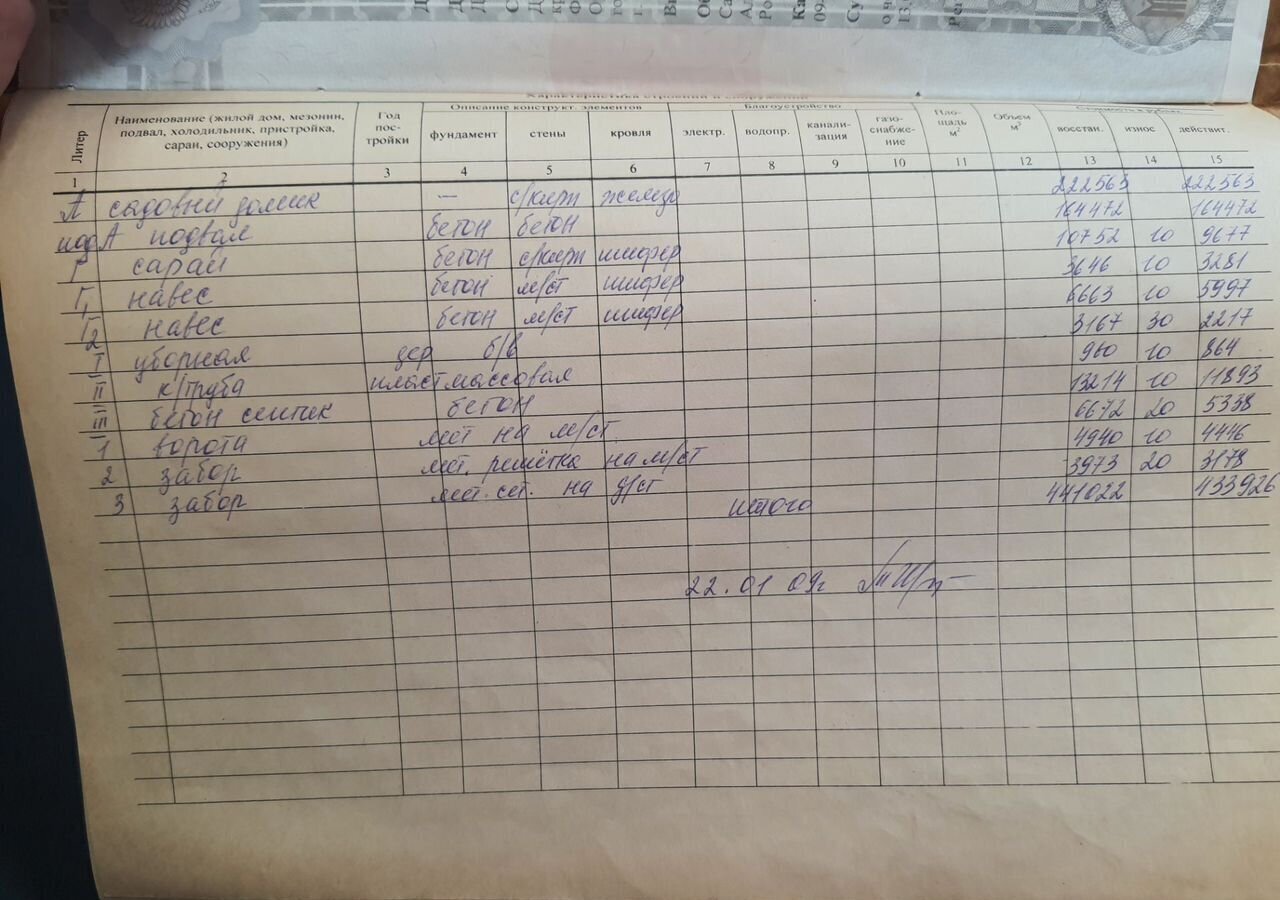 Характеристика строений и сооружений
Литер | Наименование (жилой дом, мезонин, подвал, холодильник, пристройка, сараи, сооружения) | Год постройки | Описание конструкт. элементов | Благоустройство | Площадь м² | Объем м³ | Стоимость в рублях
фундамент | стены | кровля | электр. | водопр. | канализация | газоснабжение | восстан. | износ | действит.
1 | 2 | 3 | 4 | 5 | 6 | 7 | 8 | 9 | 10 | 11 | 12 | 13 | 14 | 15
А садовый домик — с/кирп железо 222563 222563
подА подвал бетон бетон 164472 164472
Г сарай бетон с/кирп шифер 10752 10 9677
Г1 навес бетон м/ст шифер 3646 10 3281
Г2 навес бетон м/ст шифер 6663 10 5997
I уборная дер б/в 3167 30 2217
II к/труба пластмассовая 960 10 864
III бетон септик бетон 13214 10 11893
1 ворота мет на м/ст 6672 20 5338
2 забор мет. решётка на м/ст 4940 10 4446
3 забор мет. сет. на д/ст 3973 20 3178
итого 441022 433926
22.01 09г